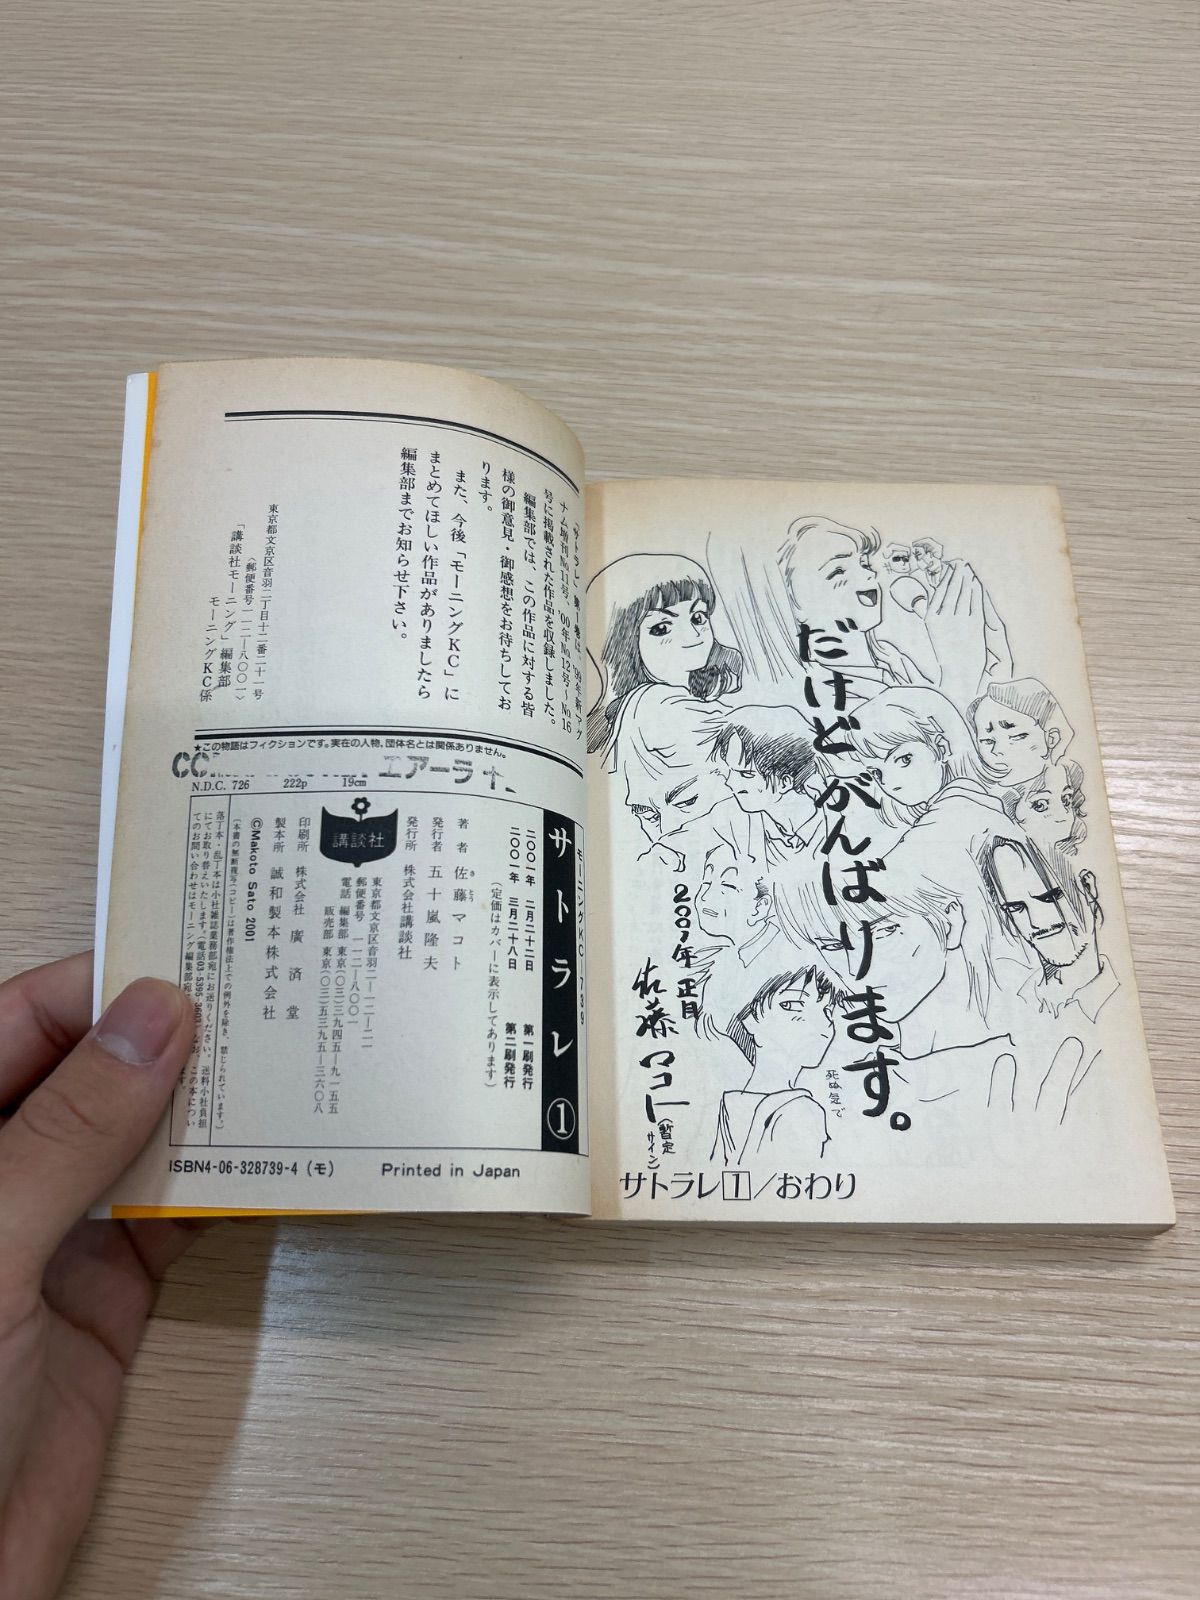 だけど
がんばります。
死ぬ気で
2001年 正月
佐藤マコト
(暫定サイン)
サトラレ1/おわり
「サトラレ」第1巻は、'99年新マグ
ナム増刊No.11号、'00年No.12号〜No.16
号に掲載された作品を収録しました。
編集部では、この作品に対する皆
様の御意見・御感想をお待ちしてお
ります。
また、今後「モーニングKC」に
まとめてほしい作品がありましたら
編集部までお知らせ下さい。
東京都文京区音羽二丁目十二番二十一号
〈郵便番号一一二―八〇〇一〉
「講談社モーニング」編集部
モーニングKC係
★この物語はフィクションです。実在の人物、団体名とは関係ありません。
エアーライ
N.D.C. 726 222p 19cm
モーニングKC―739
サトラレ①
二〇〇一年 二月二十二日 第一刷発行
二〇〇一年 三月二十八日 第二刷発行
(定価はカバーに表示してあります)
著者 佐藤マコト
さとう
発行者 五十嵐隆夫
発行所 株式会社講談社
講談社
東京都文京区音羽二―一二―二一
郵便番号 一一二―八〇〇一
電話 編集部 東京(〇三)三九四五―九一五五
販売部 東京(〇三)五三九五―三六〇八
印刷所 株式会社廣済堂
製本所 誠和製本株式会社
©Makoto Sato 2001
(本書の無断複写(コピー)は著作権法上での例外を除き、禁じられています。)
落丁本・乱丁本は小社雑誌業務部宛にお送りください。送料小社負担
にてお取り替えいたします。(電話03-5395-3603)なお、この本につい
てのお問い合わせはモーニング編集部宛
ます。
ISBN4-06-328739-4 (モ) Printed in Japan